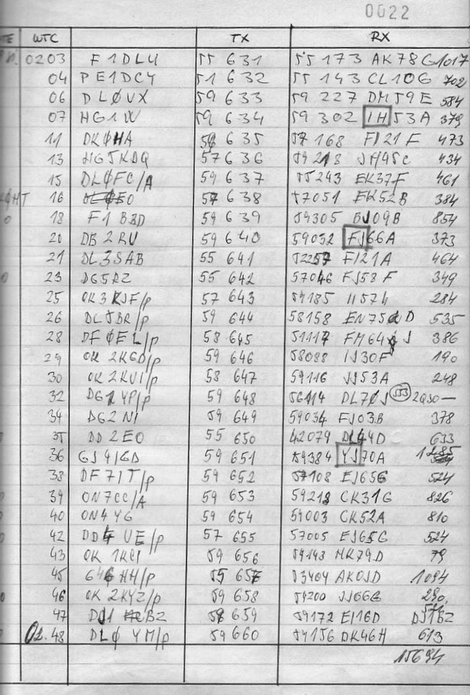 0022
UTC TX RX
0203 F1DLU 55 631 55 173 AK78G 1017
04 PE1DCY 51 632 55 143 CL10G 702
06 DLØVX 59 633 59 227 DM59E 584
07 HG1W 59 634 59 302 IH53A 379
11 DKØHA 59 635 57 168 FI21F 473
13 HG5KDQ 57 636 59218 JH45C 434
15 DLØFC/A 59 637 55243 EK37F 461
16 57 638 57051 EK52B 384
18 F1BBD 59 639 59305 BJ09B 854
20 DB2RU 59 640 59052 FJ66A 373
21 DL3SAB 55 641 52257 FI21A 464
23 DG5RZ 55 642 57046 FJ58F 349
25 OK3KJF/p 57 643 59185 II57H 284
26 DL5BR/p 59 644 58158 EN75D 535
28 DFØEL/p 58 645 51117 FM64J 386
29 OK2KGD/p 59 646 58088 IJ30F 190
30 OK2KVI/p 58 647 59116 JJ53A 248
32 DG1YP/p 58 648 56114 DL70J
34 DG2NI 59 649 59034 FJ03B 378
35 DD2EO 55 650 42079 DL44D 633
36 GJ4IGD 59 651 59384 YJ70A 1285
38 DF7IT/p 59 652 57108 EJ65G 524
39 ON7CC/A 59 653 59218 CK31G 826
40 ON4YG 59 654 59003 CK52A 810
42 UE/p 57 655 57005 EJ65G 524
43 OK1KCI 59 656 59143 HK79D 79
45 G4GHH/p 55 657 53464 AK03D 1094
46 OK2KYZ/p 59 658 59200 JJ66G 290
47 DJ1BZ 57 659 59172 EI16D 571 DJ1BZ
02.48 DLØYM/p 59 660 57156 DK46H 613
15694